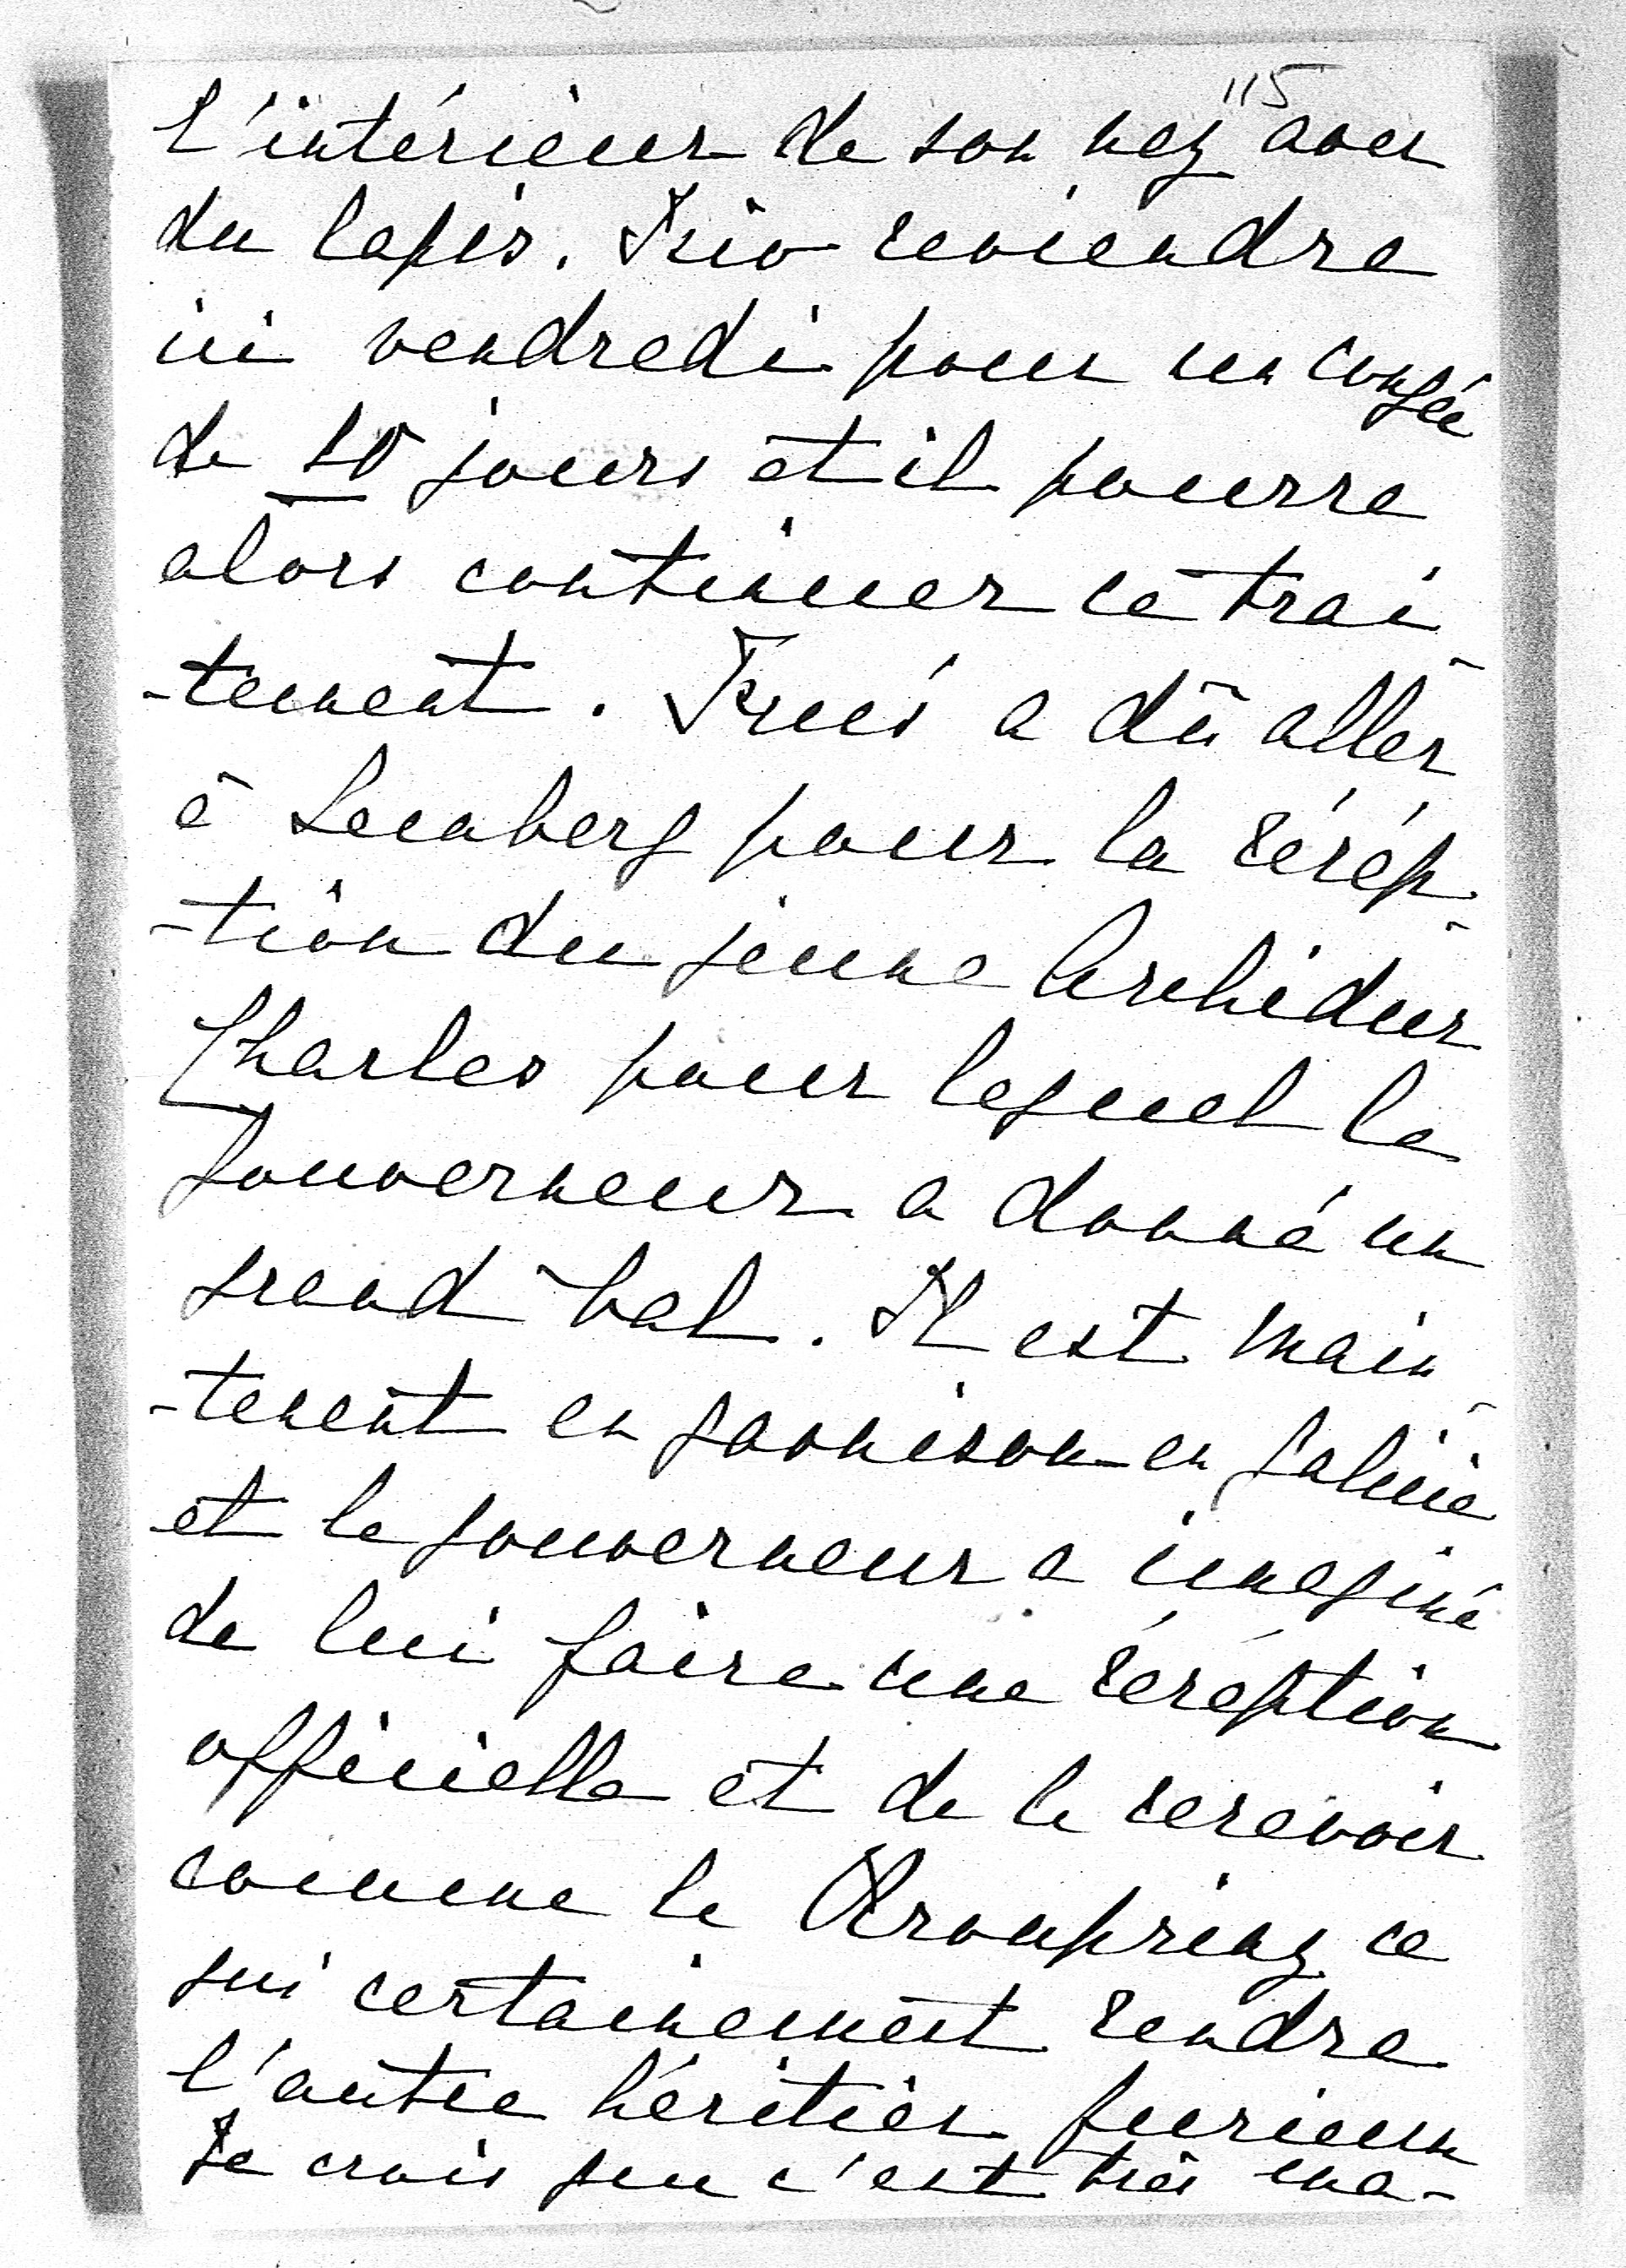 115
l'intérieur de son nez avec
du lapis. Frio reviendra
ici vendredi pour un congé
de 10 jours et il pourra
alors continuer ce trai
-tement. Frio a dû aller
à Lemberg pour la récep-
-tion du jeune Archiduc
Charles pour lequel le
Gouverneur a donné un
grand bal. Il est main-
-tenant en garnison en Galicie
et le gouverneur a imaginé
de lui faire une réception
officielle et de le recevoir
comme le Kronprinz ce
qui certainement rendra
l'autre héritier furieux
Je crois que c'est très ma-